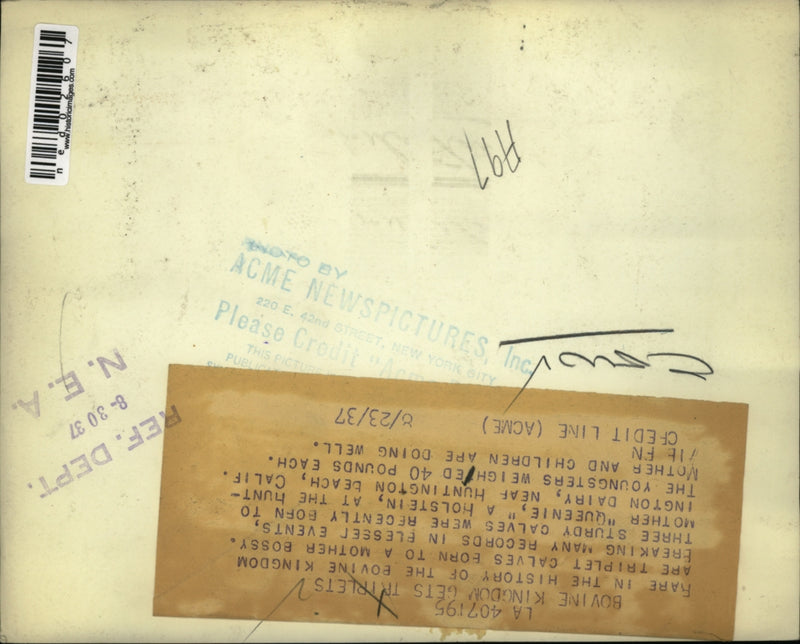 ned02607
www.historicimages.com
A97
PHOTO BY
ACME NEWSPICTURES, Inc.
220 E. 42nd STREET, NEW YORK CITY
Please Credit "Acme
THIS PICTURE
Cows
REF. DEPT.
8-30 37
N. E. A.
LA 407195
BOVINE KINGDOM GETS TRIPLETS
RARE IN THE HISTORY OF THE BOVINE KINGDOM
ARE TRIPLET CALVES BORN TO A MOTHER BOSSY.
BREAKING MANY RECORDS IN BLESSED EVENTS,
THREE STURDY CALVES WERE RECENTLY BORN TO
MOTHER "QUEENIE," A HOLSTEIN, AT THE HUNT-
INGTON DAIRY, NEAR HUNTINGTON BEACH, CALIF.
THE YOUNGSTERS WEIGHED 40 POUNDS EACH.
MOTHER AND CHILDREN ARE DOING WELL.
CREDIT LINE (ACME) 8/23/37